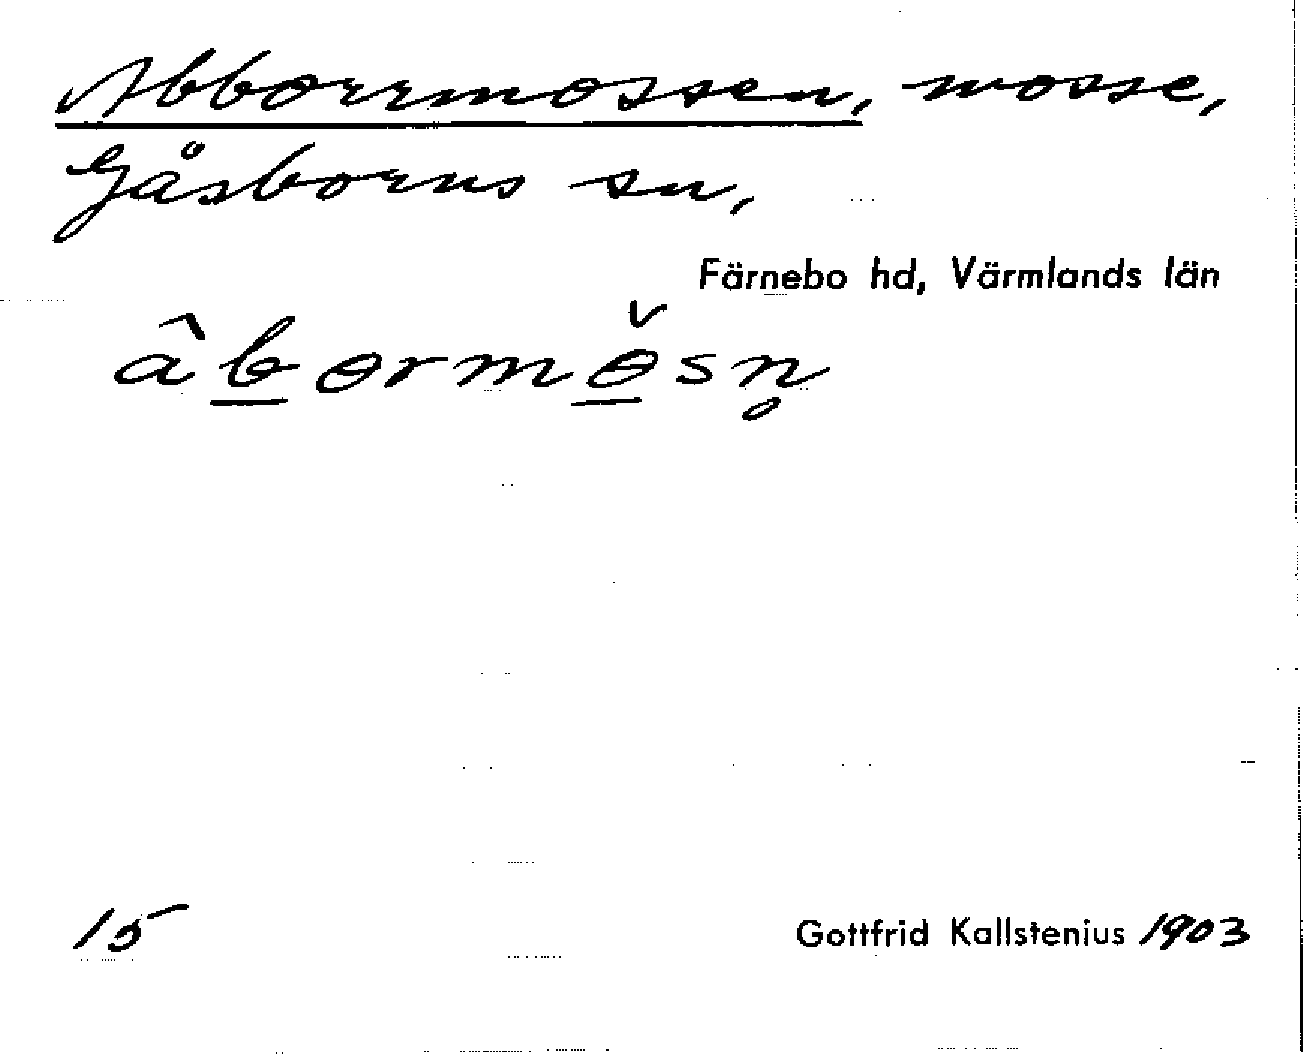 Abborrmossen, mosse,
Gåsborns sn,
Färnebo hd, Värmlands län
âb̲ormö̲̌sn̥
15 Gottfrid Kallstenius 1903